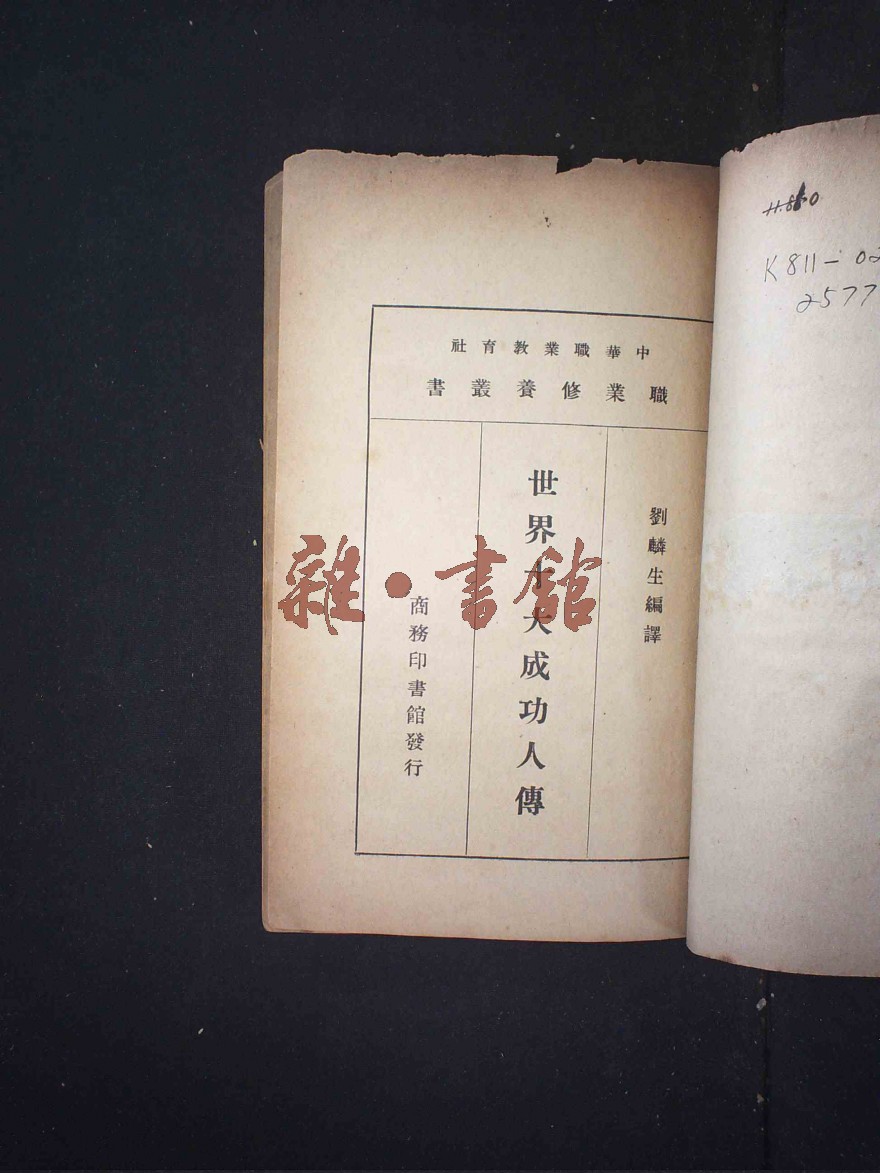 中華職業教育社
職業修養叢書
劉麟生編譯
世界十大成功人傳
商務印書館發行
雜·書館
K811-02
2577